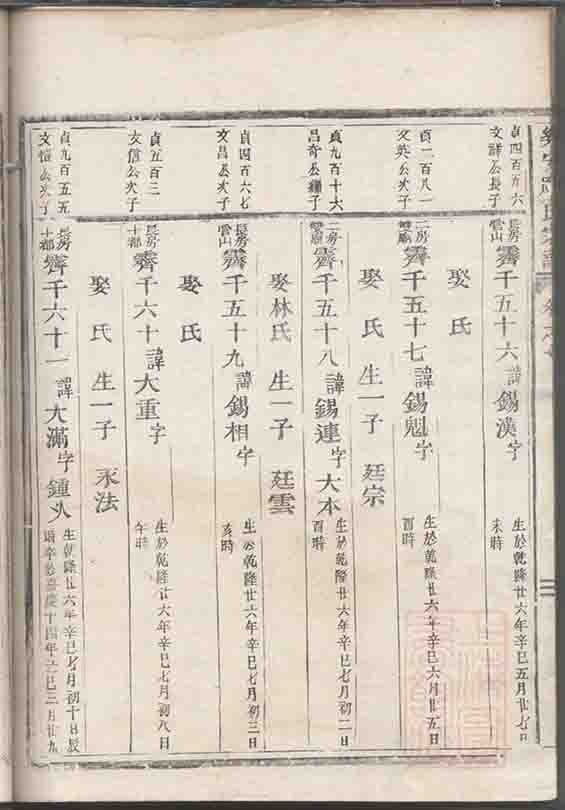 貞四百九六
文諱公長子
長房
雲山
霽千五十六諱錫漢字
生於乾隆廿六年辛巳五月廿七日
未時
娶 氏
貞二百八一
文英公次子
二房
霽千五十七諱錫魁字
生於乾隆廿六年辛巳六月廿五日
酉時
娶 氏 生一子 廷宗
貞九百十六
昌奇公繼子
二房
霽千五十八諱錫連字大本
生於乾隆廿六年辛巳七月初二日
酉時
娶林氏 生一子 廷雲
貞四百六七
文昌公次子
長房
雲山
霽千五十九諱錫相字
生於乾隆廿六年辛巳七月初三日
亥時
娶 氏
貞五百三
文信公次子
長房
十都
霽千六十諱大重字
生於乾隆廿六年辛巳七月初八日
午時
娶 氏 生一子 永法
貞九百五五
文愷公次子
長房
十都
霽千六十一諱大滿字鍾火
生乾隆廿六年辛巳七月初十日辰
時卒於嘉慶十四年己巳三月廿九